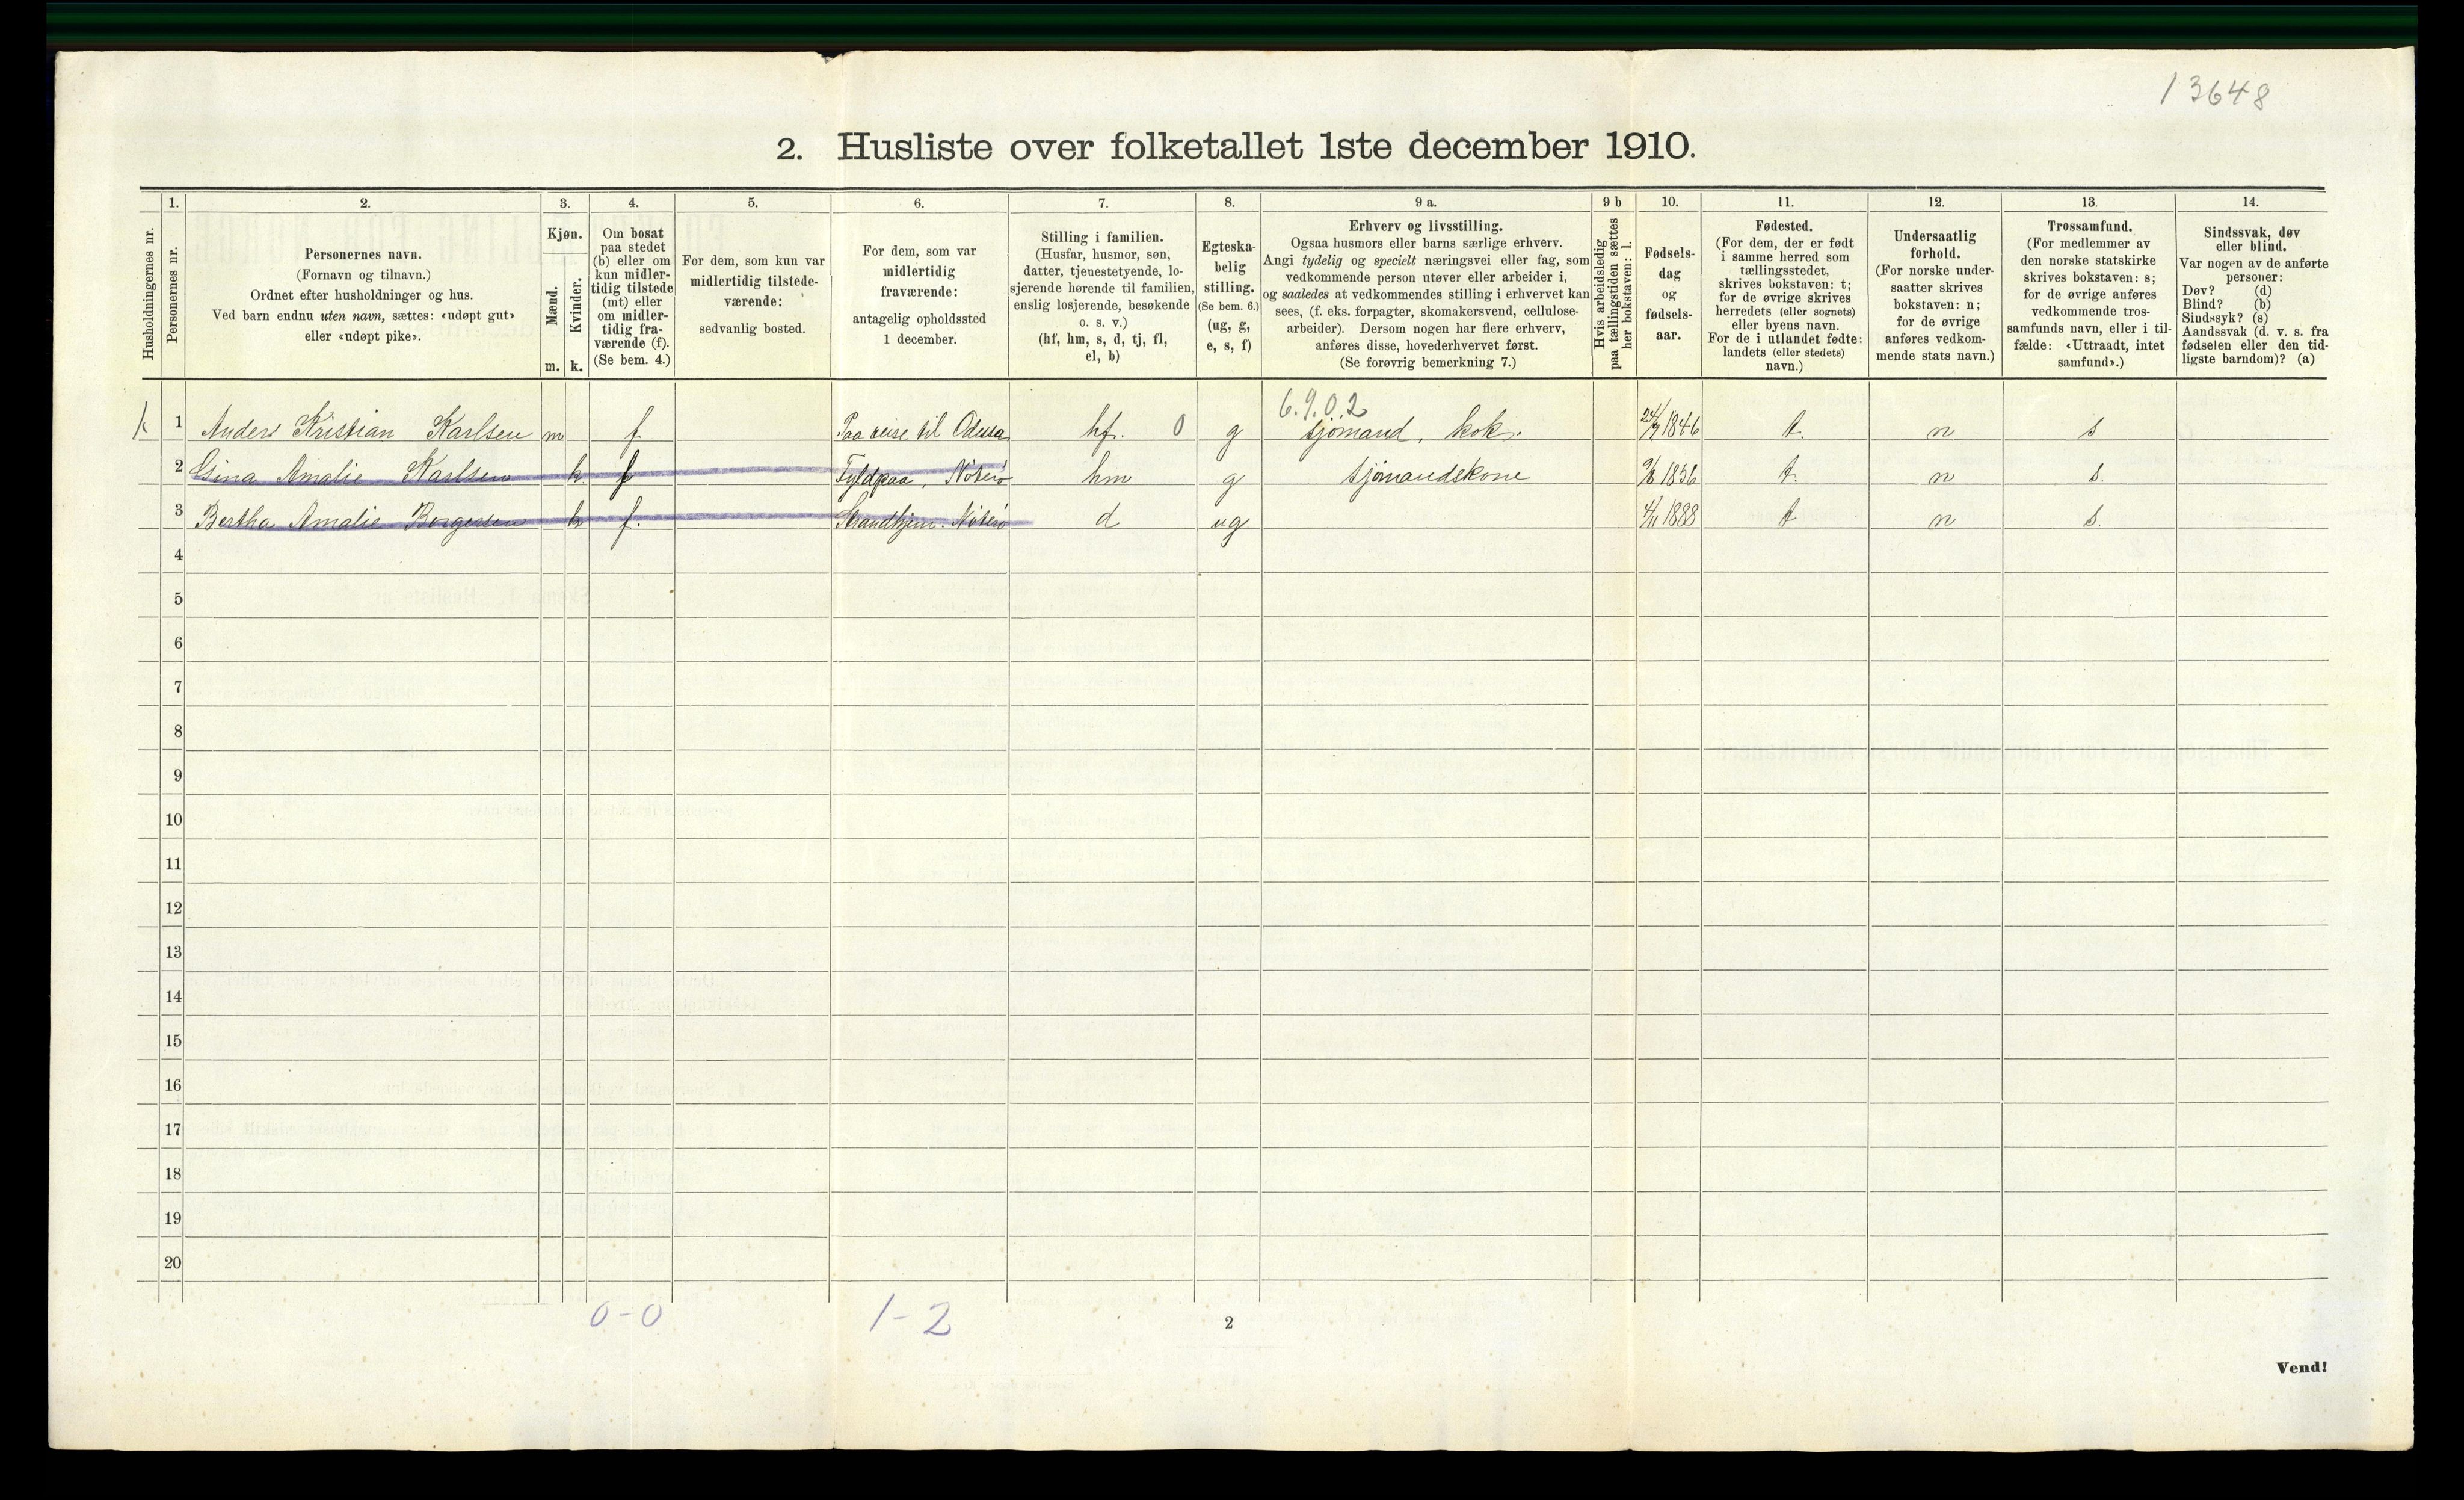 13648
2. Husliste over folketallet 1ste december 1910.
Husholdningernes nr.
1.
Personernes nr.
2.
Personernes navn.
(Fornavn og tilnavn.)
Ordnet efter husholdninger og hus.
Ved barn endnu uten navn, sættes: «udøpt gut»
eller «udøpt pike».
3.
Kjøn.
Mænd.
Kvinder.
m.
k.
4.
Om bosat
paa stedet
(b) eller om
kun midler-
tidig tilstede
(mt) eller
om midler-
tidig fra-
værende (f).
(Se bem. 4.)
5.
For dem, som kun var
midlertidig tilstede-
værende:
sedvanlig bosted.
6.
For dem, som var
midlertidig
fraværende:
antagelig opholdssted
1 december.
7.
Stilling i familien.
(Husfar, husmor, søn,
datter, tjenestetyende, lo-
sjerende hørende til familien,
enslig losjerende, besøkende
o. s. v.)
(hf, hm, s, d, tj, fl,
el, b)
8.
Egteska-
belig
stilling.
(Se bem. 6.)
(ug, g,
e, s, f)
9 a.
Erhverv og livsstilling.
Ogsaa husmors eller barns særlige erhverv.
Angi tydelig og specielt næringsvei eller fag, som
vedkommende person utøver eller arbeider i,
og saaledes at vedkommendes stilling i erhvervet kan
sees, (f. eks. forpagter, skomakersvend, cellulose-
arbeider). Dersom nogen har flere erhverv,
anføres disse, hovederhvervet først.
(Se forøvrig bemerkning 7.)
9 b
Hvis arbeidsledig
paa tællingstiden sættes
her bokstaven: l.
10.
Fødsels-
dag
og
fødsels-
aar.
11.
Fødested.
(For dem, der er født
i samme herred som
tællingsstedet,
skrives bokstaven: t;
for de øvrige skrives
herredets (eller sognets)
eller byens navn.
For de i utlandet fødte:
landets (eller stedets)
navn.)
12.
Undersaatlig
forhold.
(For norske under-
saatter skrives
bokstaven: n;
for de øvrige
anføres vedkom-
mende stats navn.)
13.
Trossamfund.
(For medlemmer av
den norske statskirke
skrives bokstaven: s;
for de øvrige anføres
vedkommende tros-
samfunds navn, eller i til-
fælde: «Uttraadt, intet
samfund».)
14.
Sindssvak, døv
eller blind.
Var nogen av de anførte
personer:
Døv? (d)
Blind? (b)
Sindssyk? (s)
Aandssvak (d. v. s. fra
fødselen eller den tid-
ligste barndom)? (a)
6.9.0.2
1 Anders Kristian Karlsen m f Paa reise til Odessa hf. 0 g sjømand, kok. 1846 t. n s
2 Gina Amalie Karlsen k. f Fyldpaa, Nøterø hm g sjømandskone 1856 t. n s.
3 Bertha Amalie Borgersen k f. Strandhjem. Nøterø d ug 4/11 1888 t n s.
4
5
6
7
8
9
10
11
12
13
14
15
16
17
18
19
20
0-0 1-2
2
Vend!